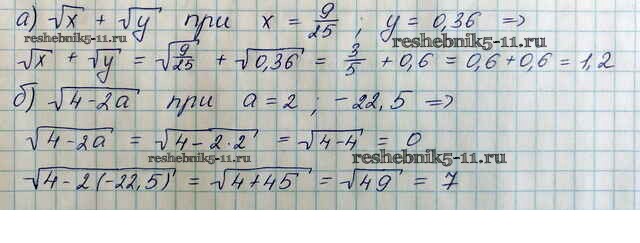 а) √x + √y при x = 9/25 ; y = 0,36 =>
reshebnik5-11.ru reshebnik5-11.ru
√x + √y = √(9/25) + √0,36 = 3/5 + 0,6 = 0,6 + 0,6 = 1,2
б) √(4-2a) при a = 2 ; -22,5 =>
√(4-2a) = √(4-2·2) = √(4-4) = 0
reshebnik5-11.ru reshebnik5-11.ru
√(4-2(-22,5)) = √(4+45) = √49 = 7